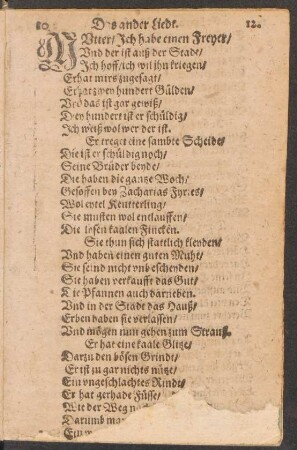 Das ander Liedt.
MUtter/ Ich habe einen Freyer/
Vnd der ist auß der Stadt/
Ich hoff/ ich wil ihn kriegen/
Er hat mirs zugesagt/
Er hat zwey hundert Gülden/
Vnd das ist gar gewiß/
Drey hundert ist er schüldig/
Ich weiß wol wer der ist.
Er treget eine sambte Scheide/
Die ist er schüldig noch/
Seine Brüder beyde/
Die haben die gantze Woch/
Gesoffen bey Zacharias
Wol eytel Reutterling/
Sie musten wol entlauffen/
Die losen kaalen Fincken.
Sie thun sich stattlich kleyden/
Vnd haben einen guten Muht/
Sie seind nicht vnbescheyden/
Sie haben verkaufft das Gut/
Die Pfannen auch darneben.
Vnd in der Stadt das Hauß/
Erben haben sie verlassen/
Vnd mögen nun gehen zum Strauß.
Er hat eine kaale Glitze/
Darzu den bösen Grindt/
Er ist zu gar nichts nütze/
Ein vngeschlachtes Rindt/
Er hat gerhade Füsse/
Wie der Weg
Darumb